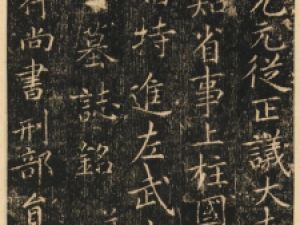 元從正議大夫
知省事上柱國
特進左武
墓誌銘
行尚書刑部員